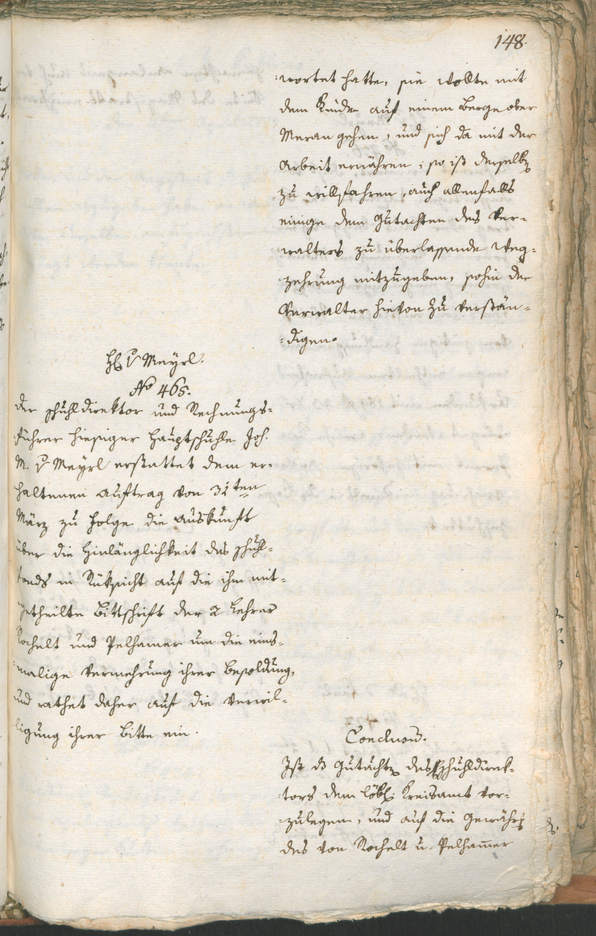 148.
wortet hatte, sie wollte mit
dem Kinde auf einem Berge ober
Meran gehen, und sich da mit der
Arbeit ernähren; so ist derselben
zu willfahren, auch allenfalls
einige dem Gutachten des Ver-
walters zu überlassende Weg-
zehrung mitzugeben, sohin der
Verwalter hievon zu verstän-
digen.
H. v Meyrl.
No 465.
Der Schuhldirektor und Rechnungs-
führer hiesiger Hauptschuhle Joh.
M. v Meyrl erstattet dem er-
haltenen Auftrag von 31ten
März zu Folge die Auskunft
über die Hinlänglichkeit des Schuhl-
fonds in Rüksicht auf die ihm mit-
getheilte Bittschrift der 2 Lehrer
Rochelt und Pelhamer um die eins-
malige Vermehrung ihrer Besoldung,
und rathet daher auf die Verwil-
ligung ihrer Bitte ein.
Conclusum.
Ist das Gutachten des Schuhldirek-
tors dem löbl. Kreisamt vor-
zulegen, und auf die Gewährung
des von Rochelt u. Pelhammer